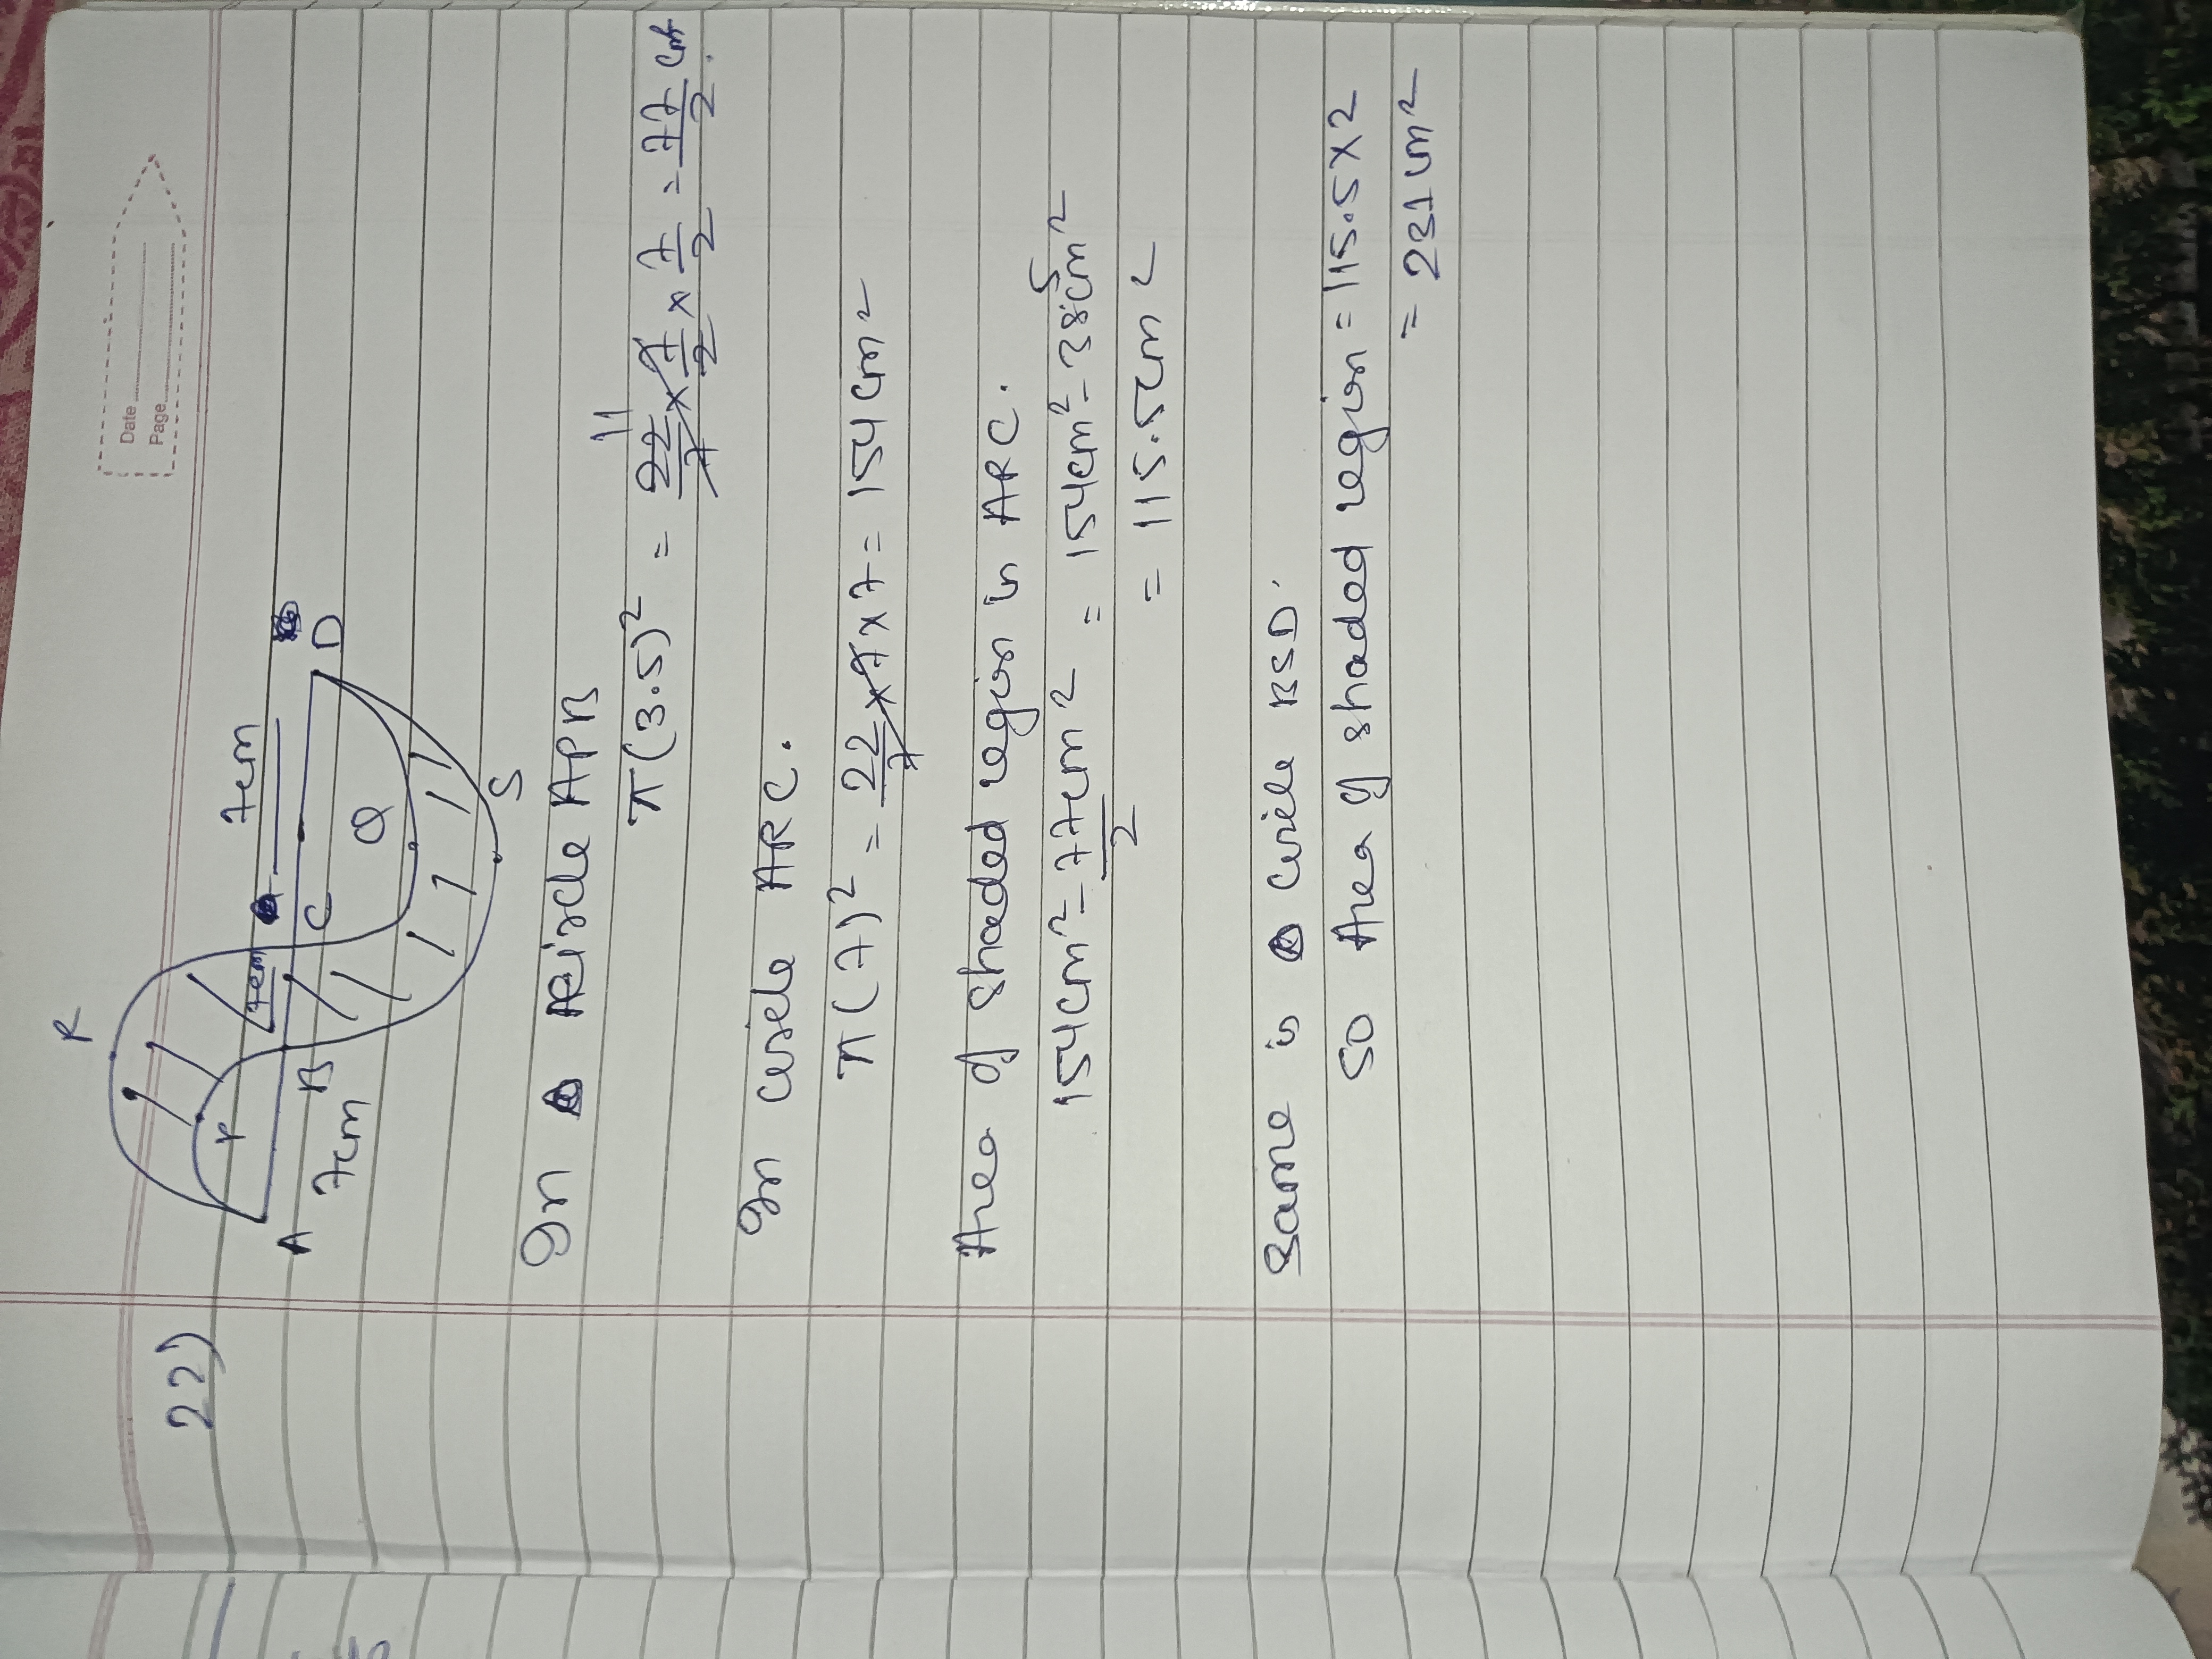 Date
Page
22)
R
P
7cm
7cm
A
B
C
D
7cm
Q
S
In circle APB
π(3.5)² = 22/7 × 7/2 × 7/2 = 77/2 cm²
11
In circle ARC.
π(7)² = 22/7 × 7 × 7 = 154 cm²
Area of shaded region in ARC.
154cm² - 77cm²/2 = 154cm² - 38.5cm²
= 115.5cm²
Same in circle BSD.
SO Area of shaded region = 115.5 X 2
= 231 cm²